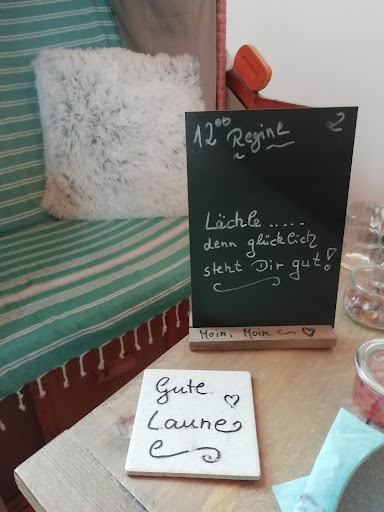 12⁰⁰ Regine 2
Lächle.....
denn glücklich
steht Dir gut!
Moin, Moin
Gute
Laune